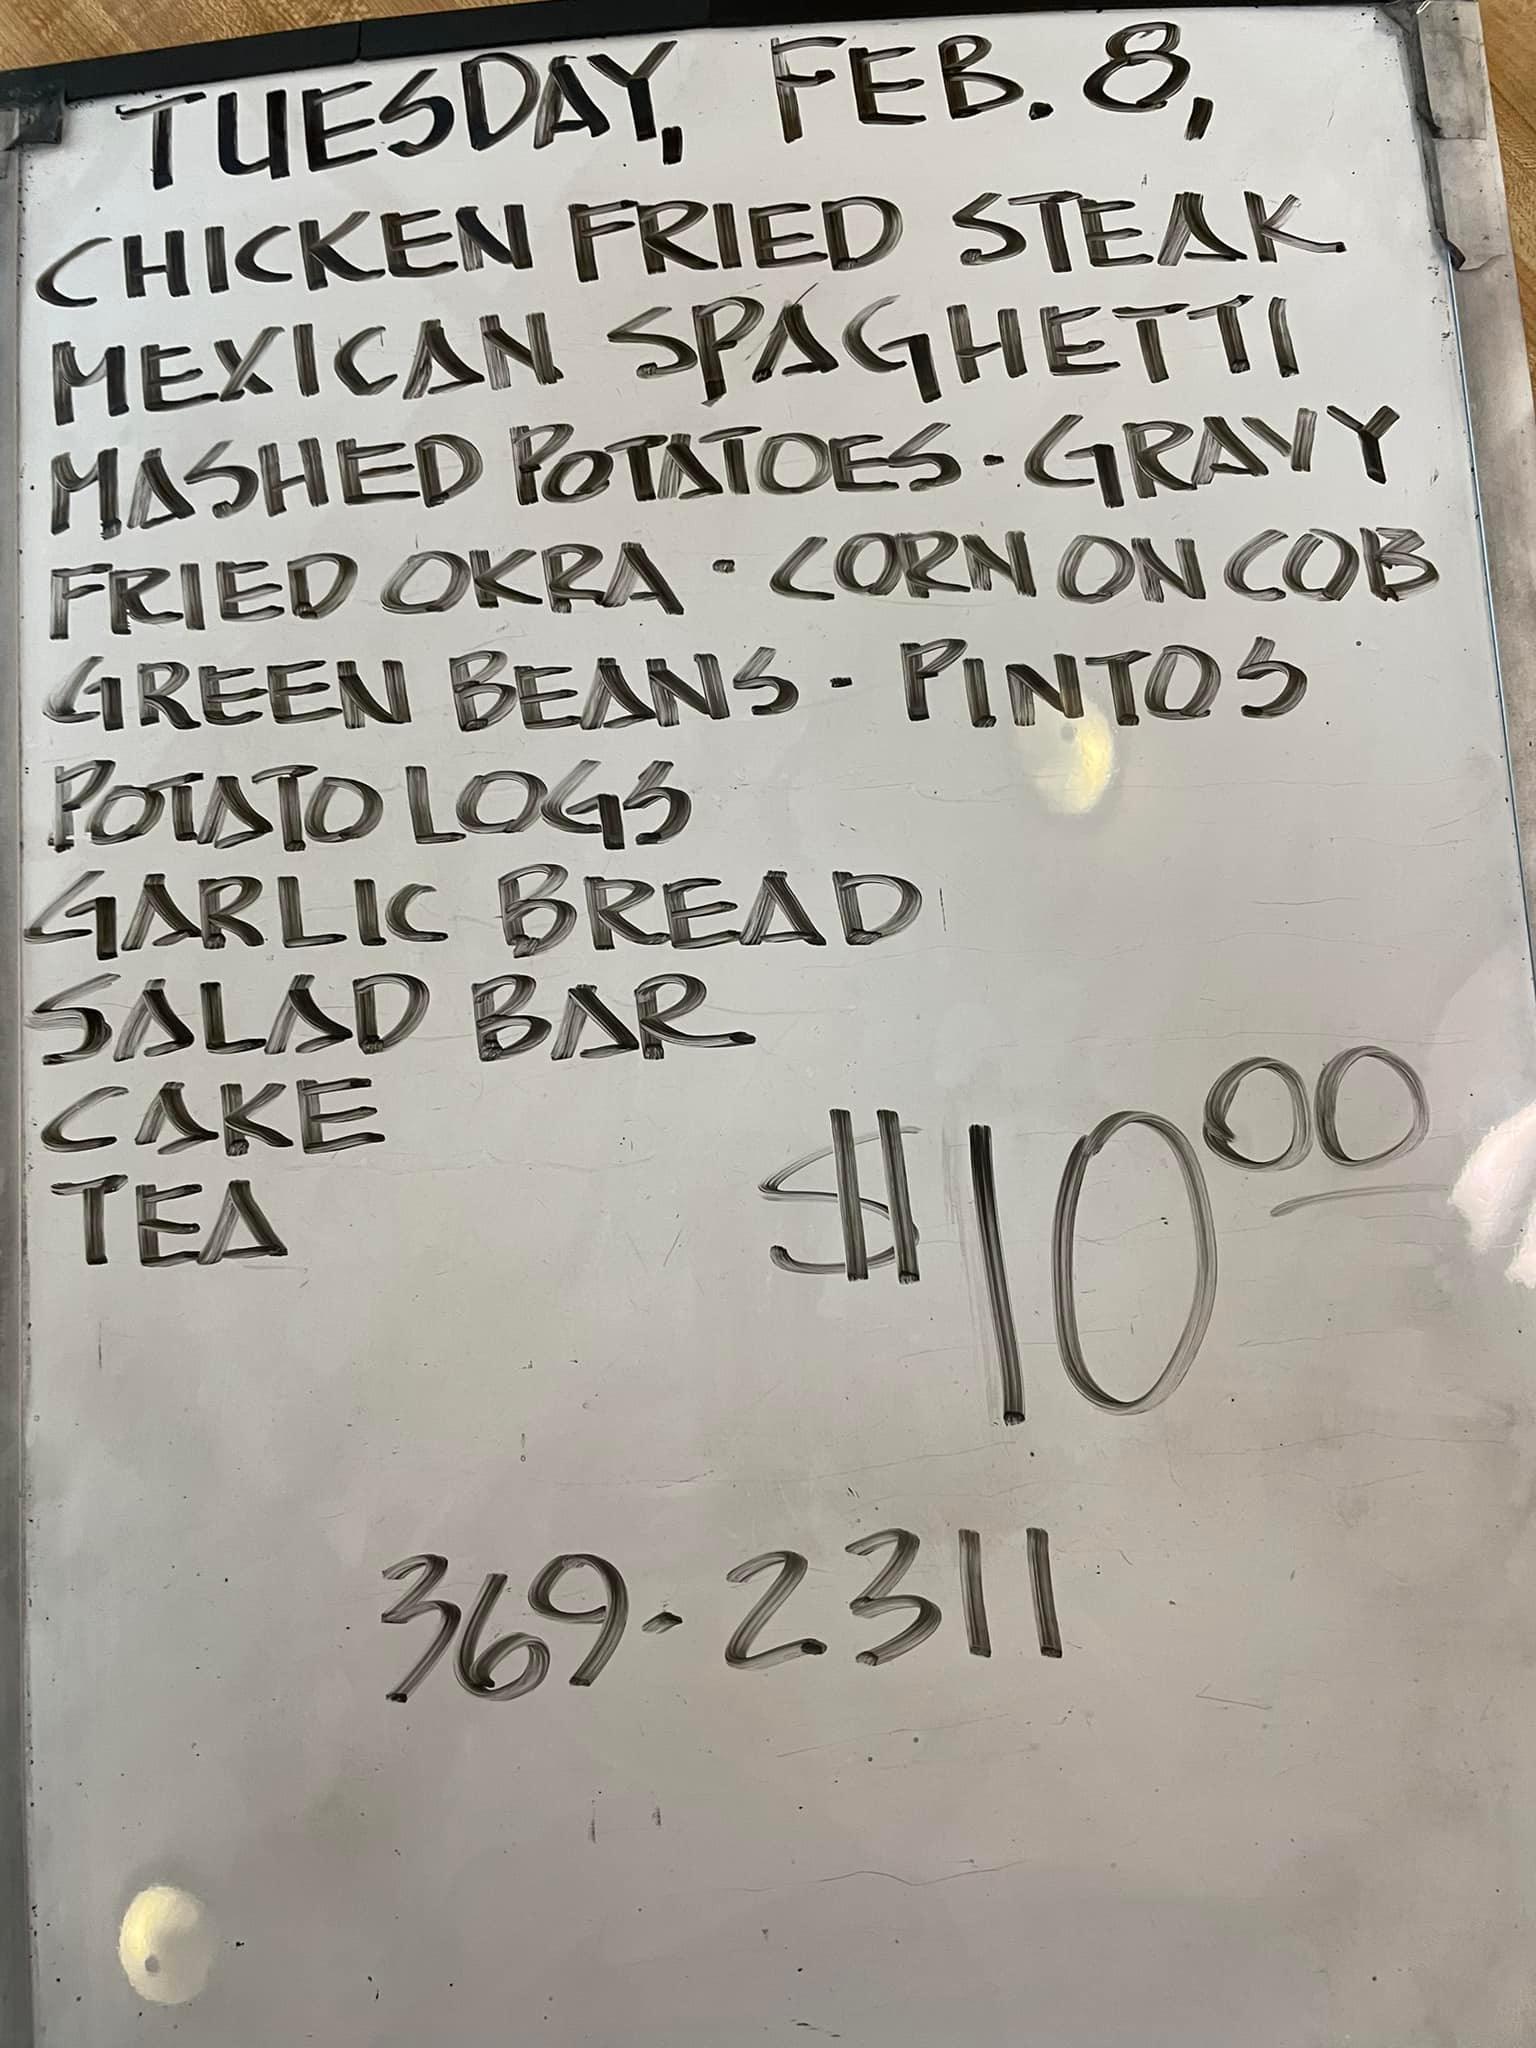 TUESDAY, FEB. 8,
CHICKEN FRIED STEAK
MEXICAN SPAGHETTI
MASHED POTATOES - GRAVY
FRIED OKRA - CORN ON COB
GREEN BEANS - PINTOS
POTATO LOGS
GARLIC BREAD
SALAD BAR
CAKE
TEA
$10.00
369-2311